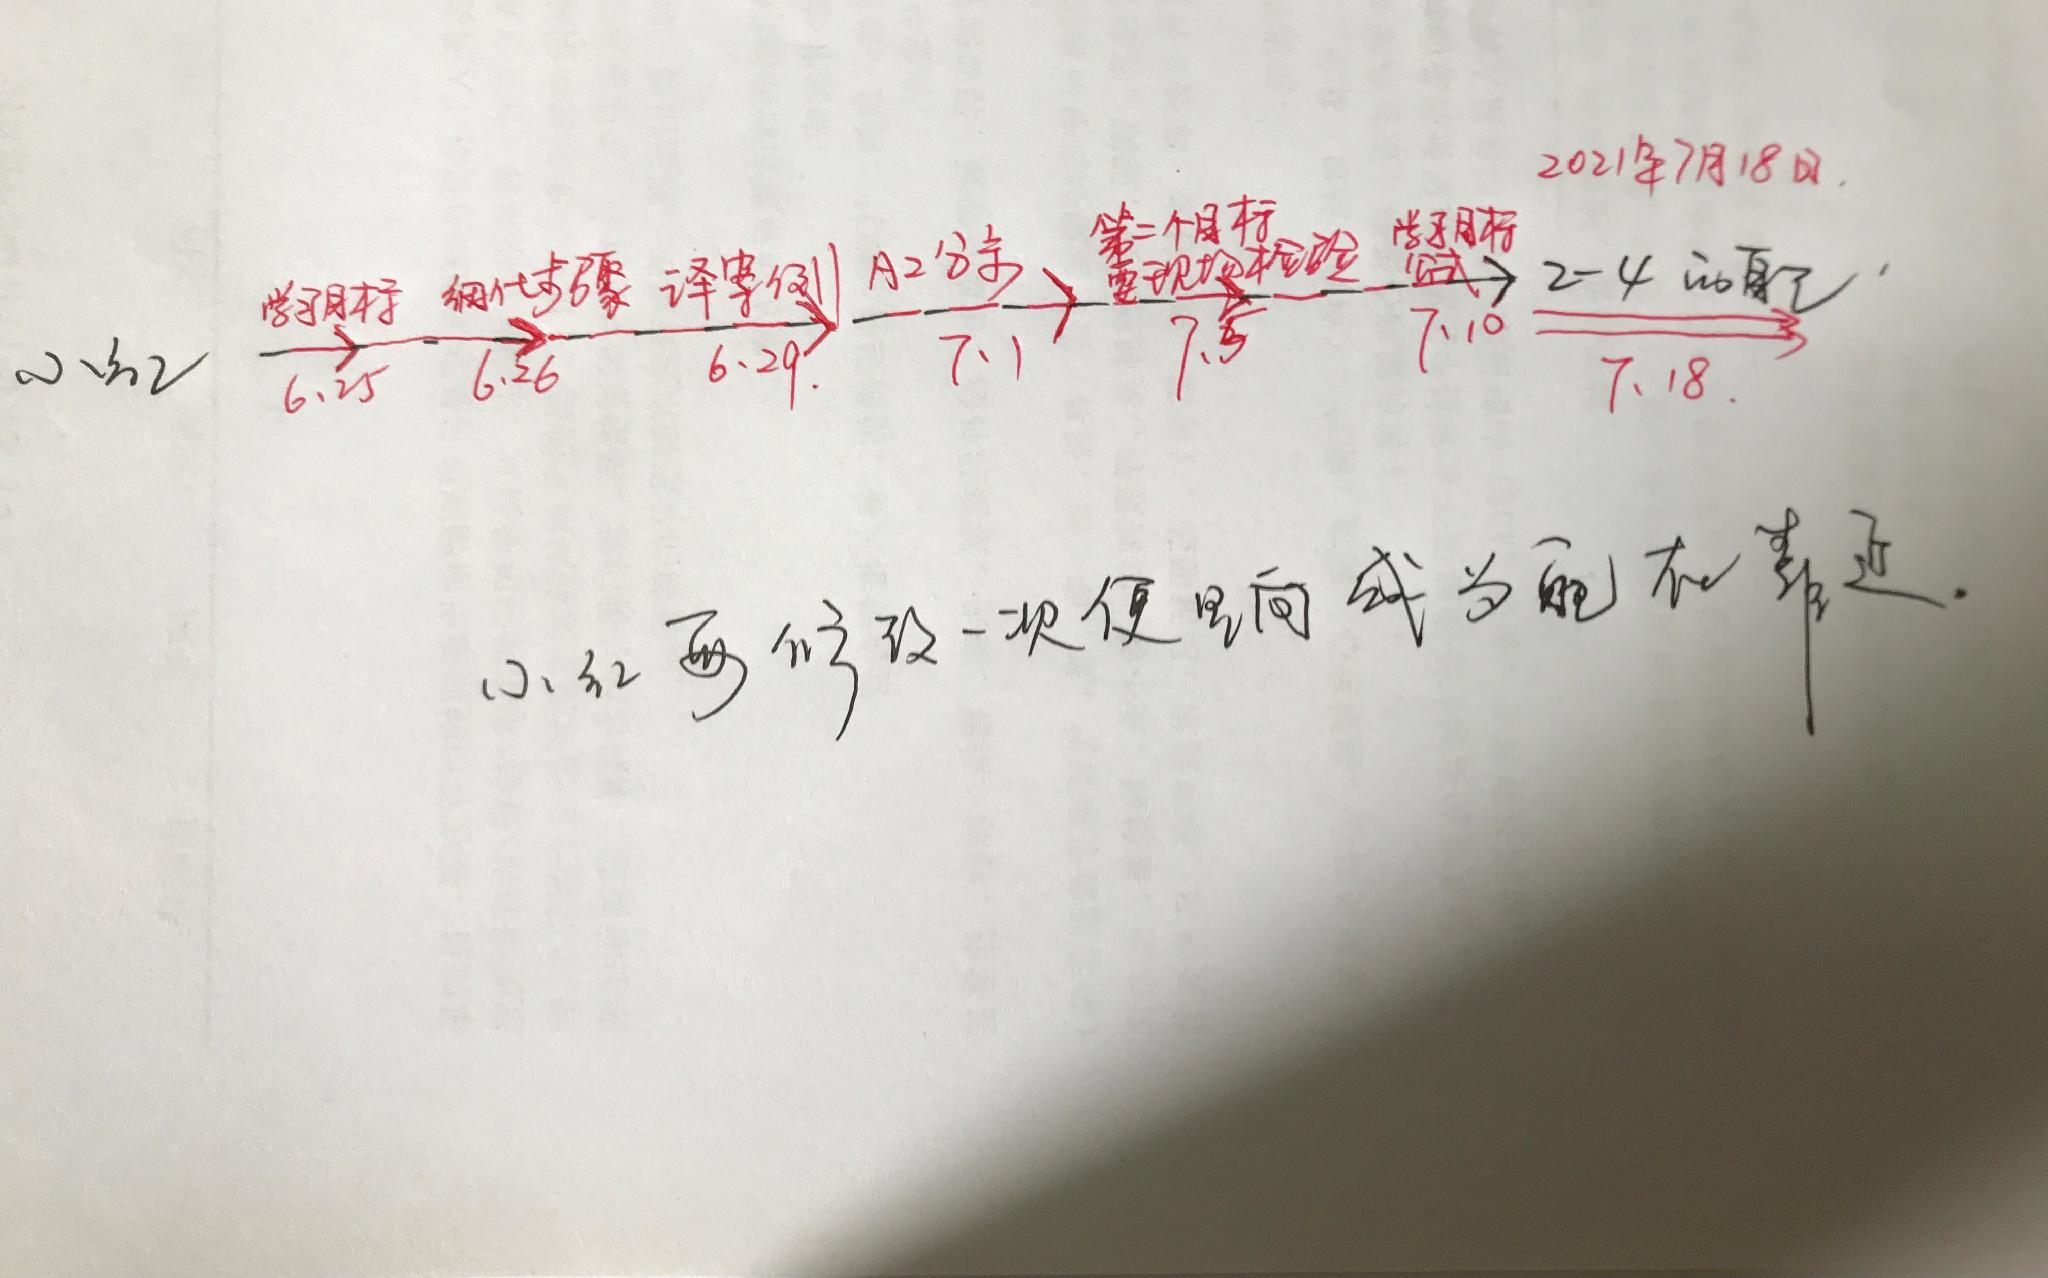 2021年7月18日.
第二个目标 学习目标
学习目标 细化步骤 译案例 A2分享 要现场检验 公式 2-4
小红
6.25 6.26 6.29. 7.1 7.5 7.10 7.18.
小红 修改一次便是向成为 在靠近.